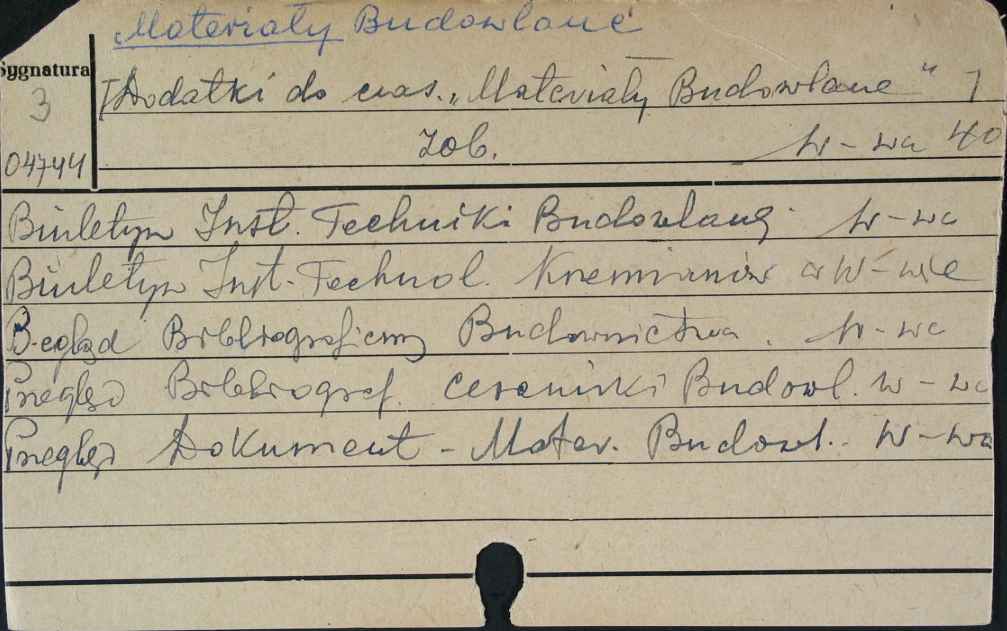 Materiały Budowlane
Sygnatura
3
04744
[Dodatki do czas. „Materiały Budowlane" ]
zob. W-wa 40
Biuletyn Inst. Techniki Budowlanej W-wa
Biuletyn Inst. Technol. Krzemianów W-wa
Przegląd Bibliograficzny Budownictwa. W-wa
Przegląd Bibliograf. Ceramiki Budowl. W-wa
Przegląd Dokument - Mater. Budowl. W-wa